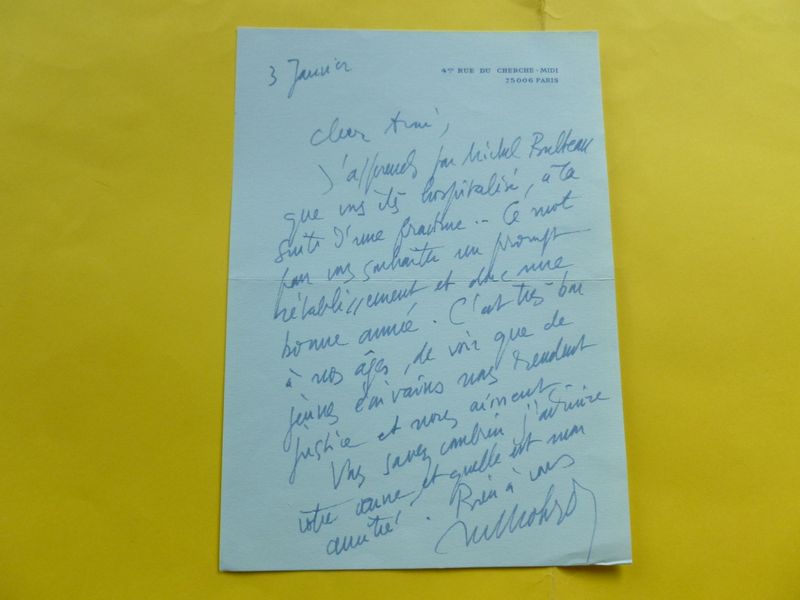 3 Janvier
4bis RUE DU CHERCHE-MIDI
75006 PARIS
Cher Aimé,
J'apprends par Michel Bulteau
que vous êtes hospitalisé, à la
suite d'une fracture... Ce mot
pour vous souhaiter un prompt
rétablissement et donc une
bonne année. C'est très bon
à nos âges, de voir que de
jeunes écrivains nous rendent
justice et nous aiment.
Vous savez combien j'admire
votre œuvre et quelle est mon
amitié. Bien à vous